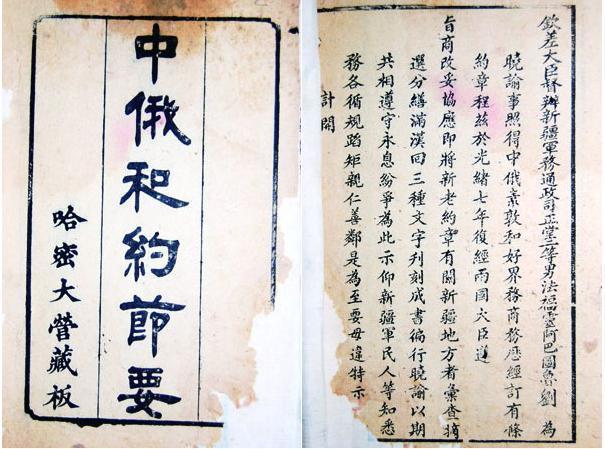 中俄和約節要
哈密大營藏板
欽差大臣督辦新疆軍務通政司正堂二等男法福靈阿巴圖魯劉 為
曉諭事照得中俄素敦和好界務商務歷經訂有條
約章程茲於光緒七年復經兩國大臣遵
旨商改妥協應即將新老約章有關新疆地方者彙查摘
選分繕滿漢回三種文字刊刻成書徧行曉諭以期
共相遵守永息紛爭為此示仰新疆軍民人等知悉
務各循規蹈矩親仁善鄰是為至要毋違特示
計開